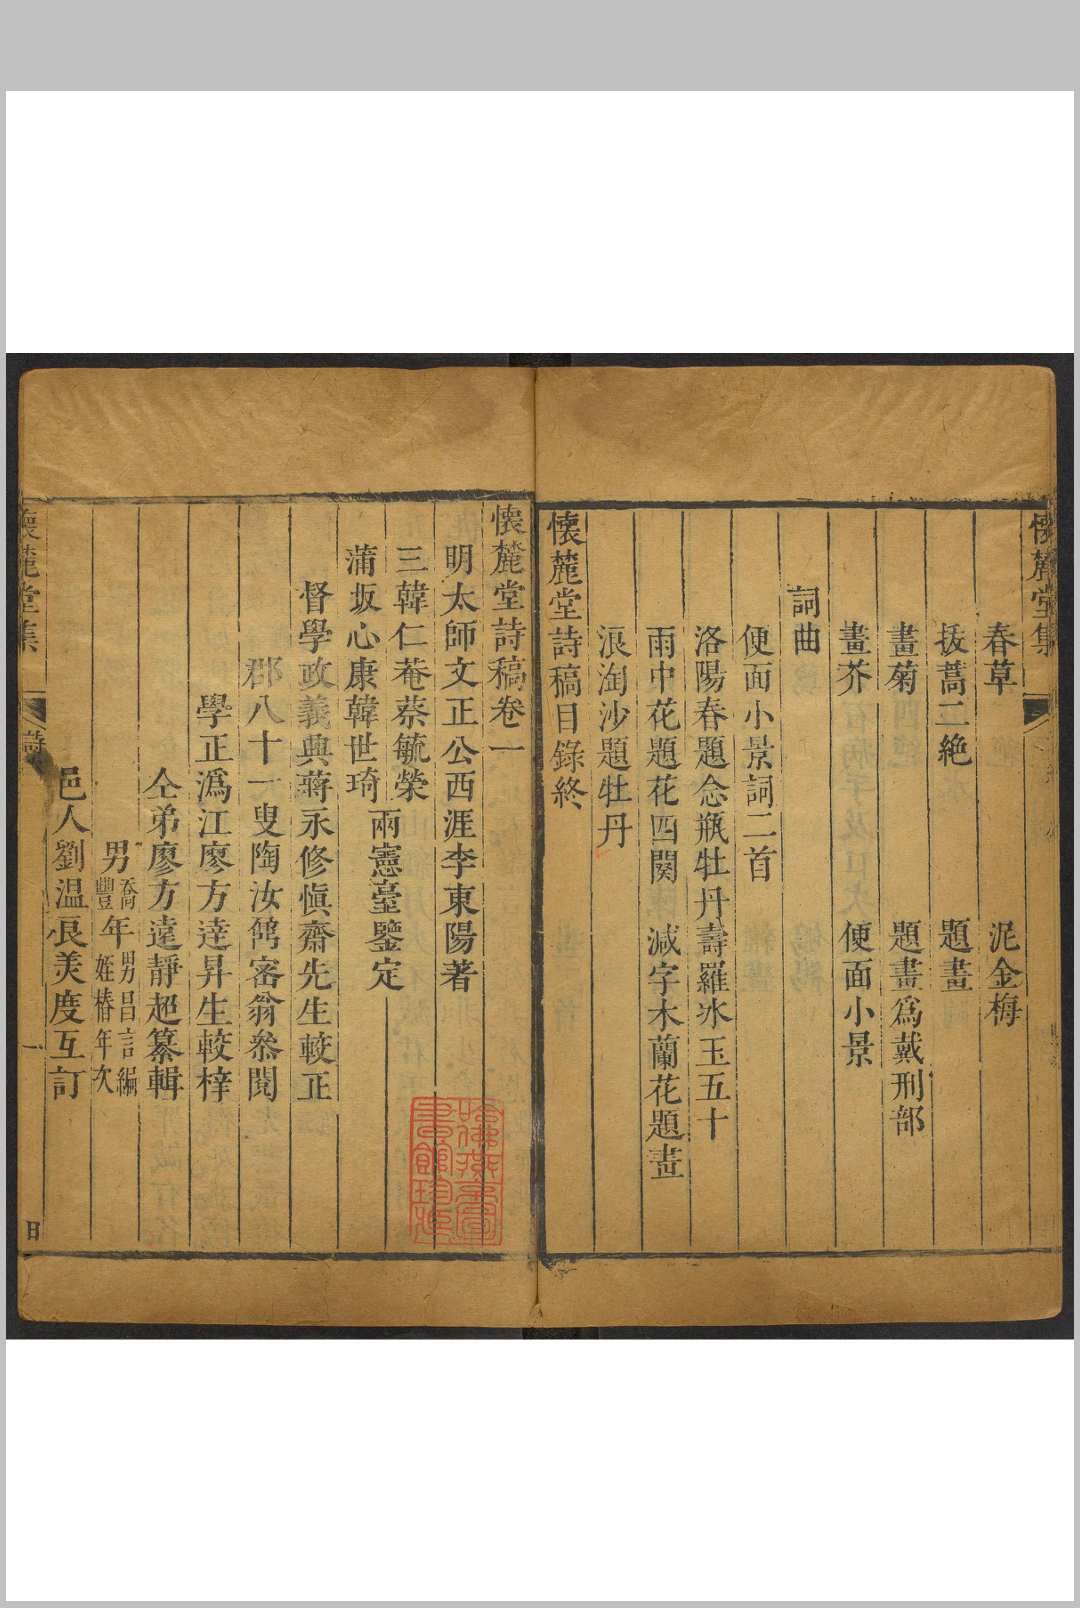 懷麓堂集
春草　泥金梅
拔蒿二絶　題畫
畫菊　題畫爲戴刑部
畫芥　便面小景
詞曲
便面小景詞二首
洛陽春題念瓶牡丹壽羅氷玉五十
雨中花題花四闋　減字木蘭花題畫
浪淘沙題牡丹
懷麓堂詩稿目錄終
懷麓堂詩稿卷一
明太師文正公西涯李東陽著
三韓仁菴蔡毓榮
蒲坂心康韓世琦
兩憲臺鑒定
督學政義興蔣永修愼齋先生較正
郡八十一叟陶汝鼐密翁叅閱
學正潙江廖方逹昇生較梓
仝弟廖方遠靜超纂輯
男喬豐年男昌言編姪椿年次
邑人劉温良羙度互訂
懷麓堂集
詩
一